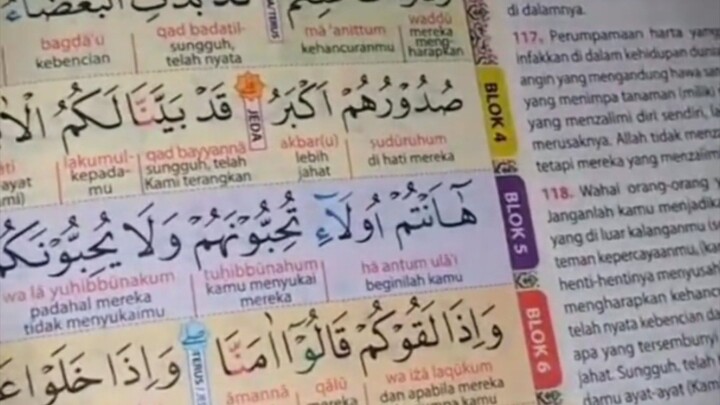 قَدْ بَدَتِ الْبَغْضَاءُ
waddū
mereka
meng-
harapkan
mā ʻanittum
kehancuranmu
qad badatil-
sungguh,
telah nyata
bagḍāʼu
kebencian
صُدُوْرُهُمْ اَكْبَرُ
JEDA
قَدْ بَيَّنَّا لَكُمُ
ṣudūruhum
di hati mereka
akbar(u)
lebih
jahat
qad bayyannā
sungguh, telah
Kami terangkan
lakumul-
kepada-
mu
BLOK 4
هٰٓاَنْتُمْ اُولَاۤءِ تُحِبُّوْنَهُمْ وَلَا يُحِبُّوْنَكُمْ
hā antum ulā'i
beginilah kamu
tuhibbūnahum
kamu menyukai
mereka
wa lā yuhibbūnakum
padahal mereka
tidak menyukaimu
BLOK 5
وَاِذَا لَقُوْكُمْ قَالُوْٓا اٰمَنَّا
وَاِذَا خَلَوْا
wa iżā laqūkum
dan apabila mereka
qālū
mereka
āmannā
BLOK 6
di dalamnya.
117. Perumpamaan harta yang
infakkan di dalam kehidupan dunia
angin yang mengandung hawa
yang menimpa tanaman (milik)
yang menzalimi diri sendiri,
merusaknya. Allah tidak
tetapi mereka yang menzalimi
118. Wahai orang-orang
Janganlah kamu menjadikan
yang di luar kalanganmu
teman kepercayaanmu,
henti-hentinya menyusahkan
mengharapkan kehancuran
telah nyata kebencian dari
apa yang tersembunyi
jahat. Sungguh, telah
damu ayat-ayat (Kami